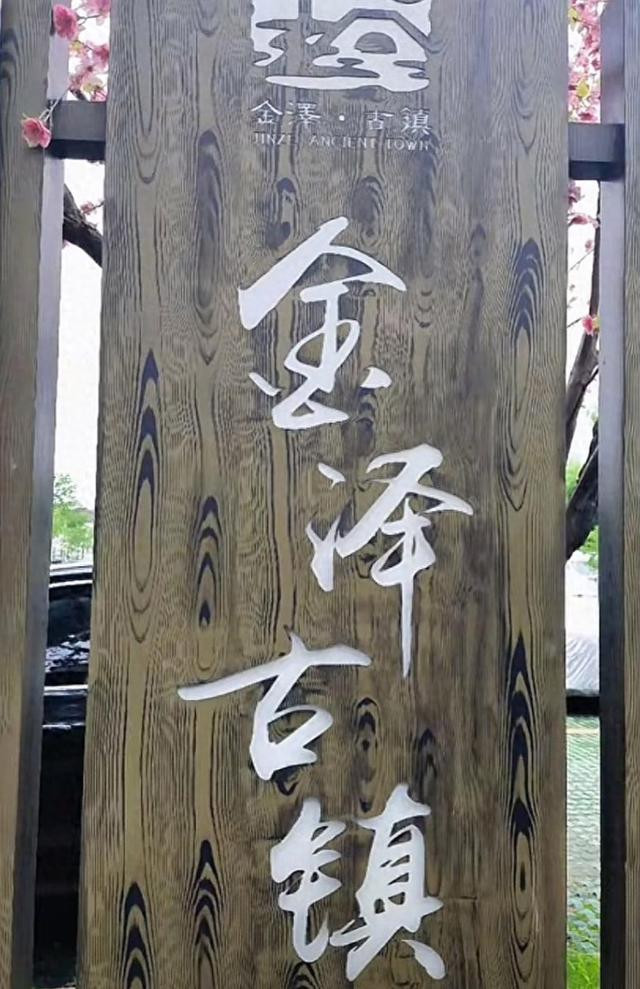 金澤·古镇
JINZE ANCIENT TOWN
金泽古镇